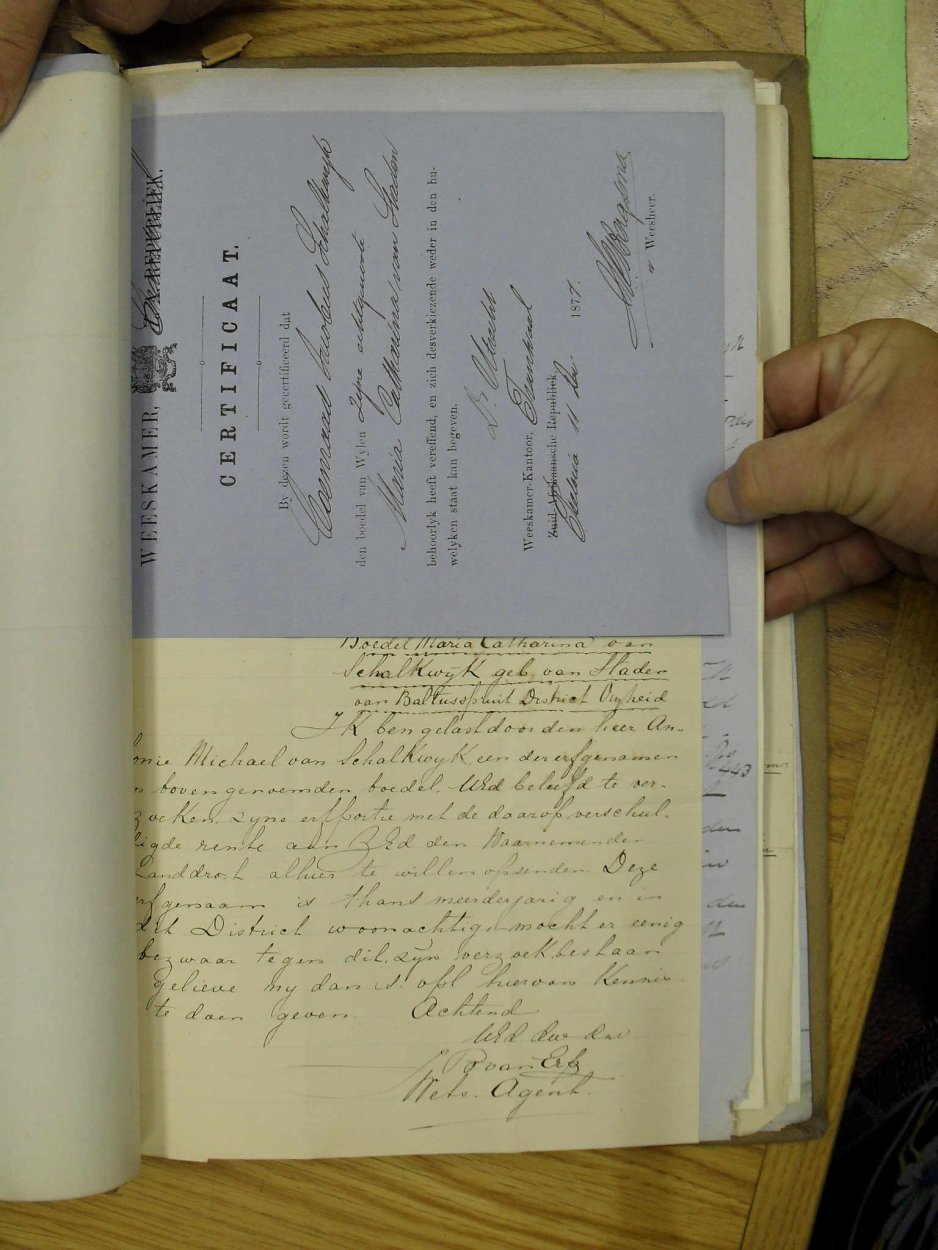 WEESKAMER, ZA REPUBLIEK.
CERTIFICAAT.
By dezen wordt gecertificeerd dat
Coenraad Jacobus Schalkwyk
den boedel van Wylen Zyne echtgenoote
Maria Catharina van Staden
behoorlyk heeft vereffend, en zich desverkiezende weder in den hu-
welyken staat kan begeven.
Dt. Utrecht
Weeskamer-Kantoor,
Zuid Afrikaansche Republiek,
11 1877.
Weesheer.
Boedel Maria Catharina van
Schalkwÿk geb. van Staden
van Baltusspruit District Vryheid
Ik ben gelast door den heer An-
onie Michael van Schalkwyk een der erfgenamen
n bovengenoemden boedel. UEd beleefd te ver-
zoeken zyne erfportie met de daarop verschul-
digde rente aan ZEd den Waarnemenden
Landdrost alhier te willen opzenden. Deze
erfgenaam is thans meerderjarig en in
dit District woonachtig, mocht er eenig
bezwaar tegen dit zÿn verzoek bestaan
gelieve my dan s.v.pl hiervan kennis
te doen geven. Achtend
UEd dw dnr
van Erk
Wets. Agent.